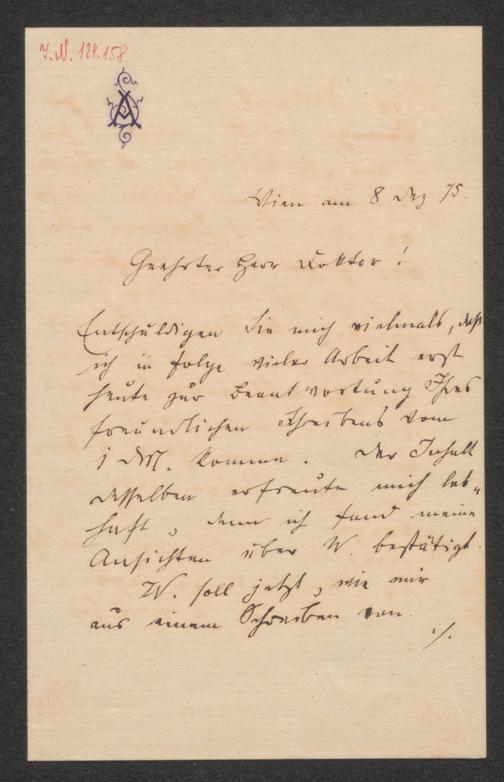 J.N. 129.158
Wien am 8 Dez 75.
Geehrter Herr Doktor!
Entschuldigen Sie mich vielmals, daß
ich in folge vieler Arbeit erst
heute zur Beantwortung Ihres
freundlichen Schreibens vom
1 dM. komme. Der Inhalt
desselben erfreute mich leb„
haft, denn ich fand meine
Ansichten über W. bestätigt.
W. soll jetzt, wie mir
aus einem Schreiben von
./.